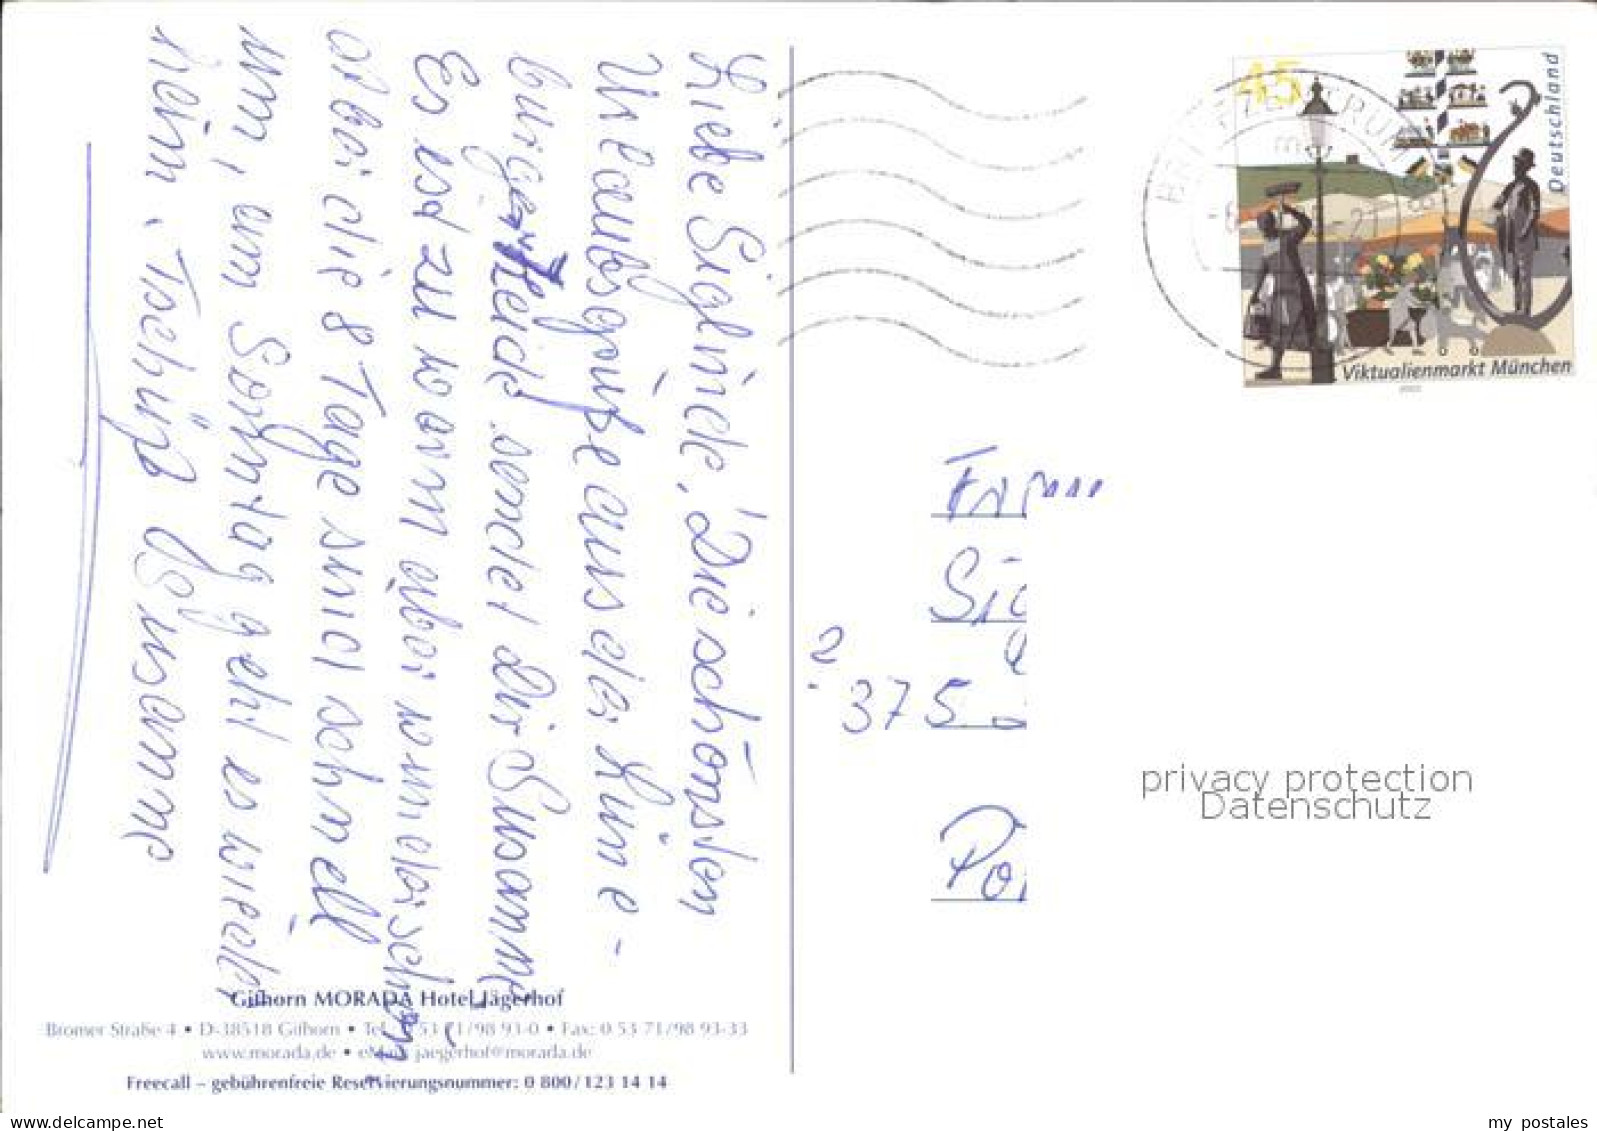 Liebe Siglinde, Die schönsten
Urlaubsgrüße aus der Lüne-
burger Heide sendet Dir Susanne
Es ist zu warm aber wunderschön,
aber die 8 Tage sind schnell
um, am Sonntag geht es wieder
heim. Tschüß Susanne
Gifhorn MORADA Hotel Jägerhof
Bromer Straße 4 • D-38518 Gifhorn • Tel.: 0 53 71/98 93-0 • Fax: 0 53 71/98 93-33
www.morada.de • eMail: jaegerhof@morada.de
Freecall – gebührenfreie Reservierungsnummer: 0 800/123 14 14
45
Deutschland
Viktualienmarkt München
BRIEFZENTRUM
Sig
375
Por
privacy protection
Datenschutz
www.delcampe.net
my_postales